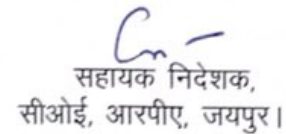 सहायक निदेशक,
सीओई, आरपीए, जयपुर।